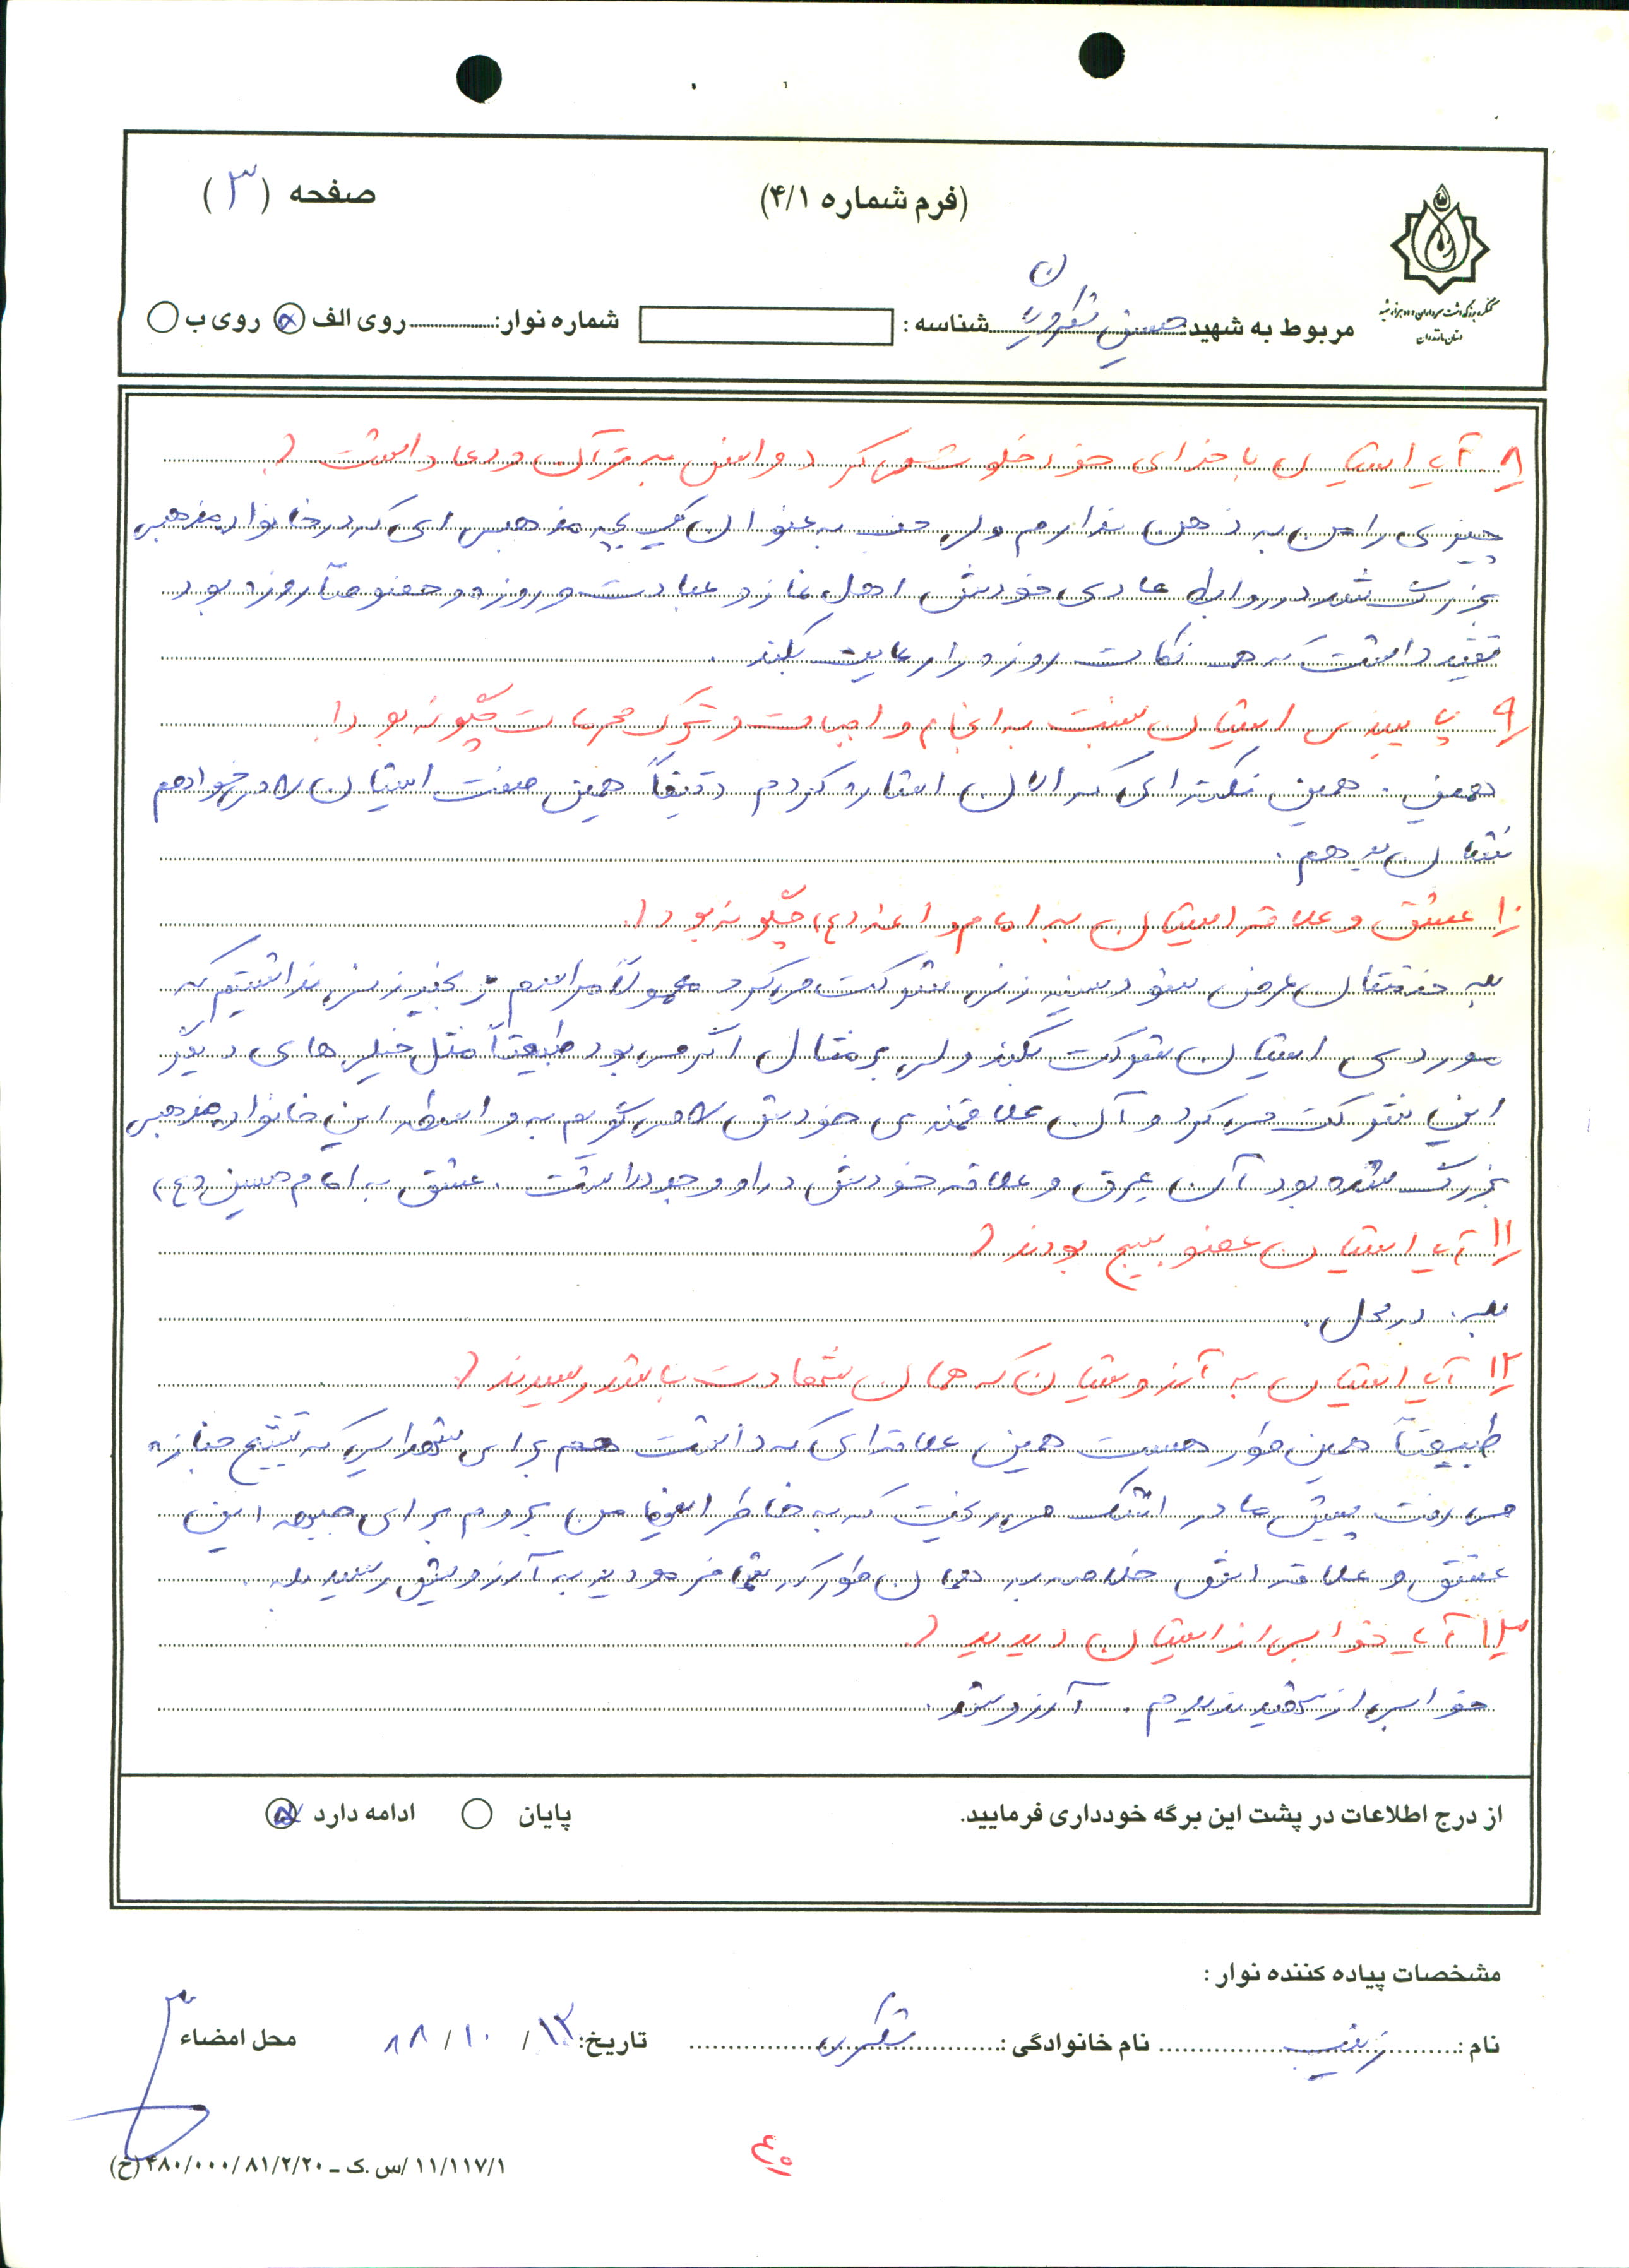 (فرم شماره ۴/۱)
صفحه (۳)
کنگره بزرگداشت سرداران و ده هزار شهید
استان مازندران
مربوط به شهید: حسین شناسه: شماره نوار: روی الف روی ب
۸- آیا ایشان با خدای خود خلوت می‌کرد و انس به قرآن و دعا داشت؟
چیزی را من به ذهن ندارم ولی خب به عنوان یک بچه مذهبی ای که در خانواده مذهبی
بزرگ شد در روابط عادی خودش اهل نماز و عبادت و روزه و خصوصاً روزه بود
تقید داشت که همه نکات روزه را رعایت بکند.
۹- پایبندی ایشان نسبت به انجام واجبات و ترک محرمات چگونه بود؟
همین. همین نکته‌ای که الان اشاره کردم دقیقاً همین صفت ایشان را می‌خواهم
نشان بدهم.
۱۰- عشق و علاقه ایشان به امام و ائمه (ع) چگونه بود؟
بله خدمتتان عرض شود سینه زنی شرکت می‌کرد معمولاً مراسم زنجیر زنی نداشتیم که
موردی ایشان شرکت بکند ولی بر مثال اگر می‌بود طبیعتاً مثل خیلی‌های دیگر
این شرکت می‌کرد و آن علاقمندی خودش را می‌گویم به واسطه این خانواده مذهبی
بزرگ شده بود آن عرق و علاقه خودش در او وجود داشت. عشق به امام حسین (ع)
۱۱- آیا ایشان عضو بسیج بودند؟
بله. در محل.
۱۲- آیا ایشان به آرزویشان که همان شهادت باشد رسیدند؟
طبیعتاً همین طور هست همین علاقه‌ای که داشت هم برای شهدایی که تشییع جنازه
می‌رفت پیش ما در اشک می‌ریخت که به خاطر اینها من بروم برای جبهه این
عشق و علاقه اش خلاصه به همان طور که شما فرمودید به آرزویش رسید بله.
۱۳- آیا خوابی از ایشان دیدید؟
خوابی از شهید ندیدم. آرزو شد.
از درج اطلاعات در پشت این برگه خودداری فرمایید.
پایان ادامه دارد
مشخصات پیاده کننده نوار:
نام: زینب نام خانوادگی: تاریخ: ۱۳/۱۰/۸۸ محل امضاء
۱۱/۱۱۷/۱/س.ک - ۴۸۰/۰۰۰/۸۱/۲/۲۰ (خ)